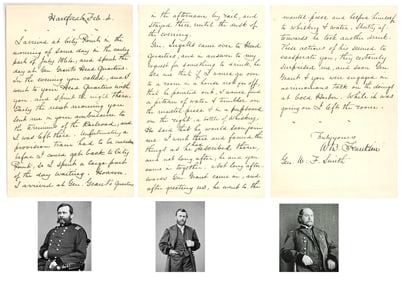 Hartford, Feb 2.
I arrived at City Point in the
morning of some day in the early
part of July 1864, and spent the
day at Gen Grant's Head Quarters.
In the evening you called, and I
went to your Head Quarters with
you, and spent the night there.
Early the next morning you
lent me your ambulance to
the terminus of the Railroad, and
I was left there. Unfortunately a
provision train had to be
before I could get back to City
Point, & I spent a large part
of the day waiting. However,
I arrived at Gen. Grant's Quarters
in the afternoon by rail, and
stayed there until the dusk of
the evening.
Gen. Ingalls came over to Head
Quarters, and in answer to my
request for something to drink, he
told me that if I would go over
to a room in
that he pointed out, I would find
a pitcher of water & tumbler on
the mantel piece & in a cupboard
on the right, a bottle of whiskey.
He said that he would soon join
me. I went there and found the
things as he described them,
and not long after, he and you
came in together. Not long after
wards Gen Grant came in, and
after greeting us, he went to the
mantel piece and helped himself
to whiskey & water. Shortly af-
terwards he took another drink.
These actions of his seemed to
exasperate you, they certainly
surprised me, and soon Gen
Grant & you were engaged in
acrimonious talk on the
at Cold Harbor. While it was
going on I left the room.
Truly yours
W B Franklin
Gen W. F. Smith